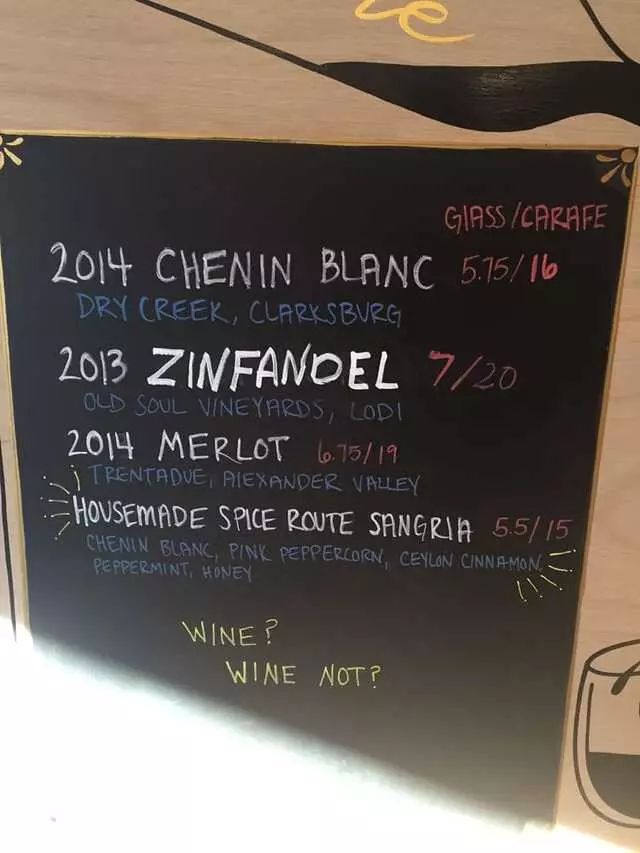 GLASS/CARAFE
2014 CHENIN BLANC 5.75/16
DRY CREEK, CLARKSBURG
2013 ZINFANDEL 7/20
OLD SOUL VINEYARDS, LODI
2014 MERLOT 6.75/19
TRENTADUE, ALEXANDER VALLEY
HOUSEMADE SPICE ROUTE SANGRIA 5.5/15
CHENIN BLANC, PINK PEPPERCORN, CEYLON CINNAMON,
PEPPERMINT, HONEY
WINE?
WINE NOT?